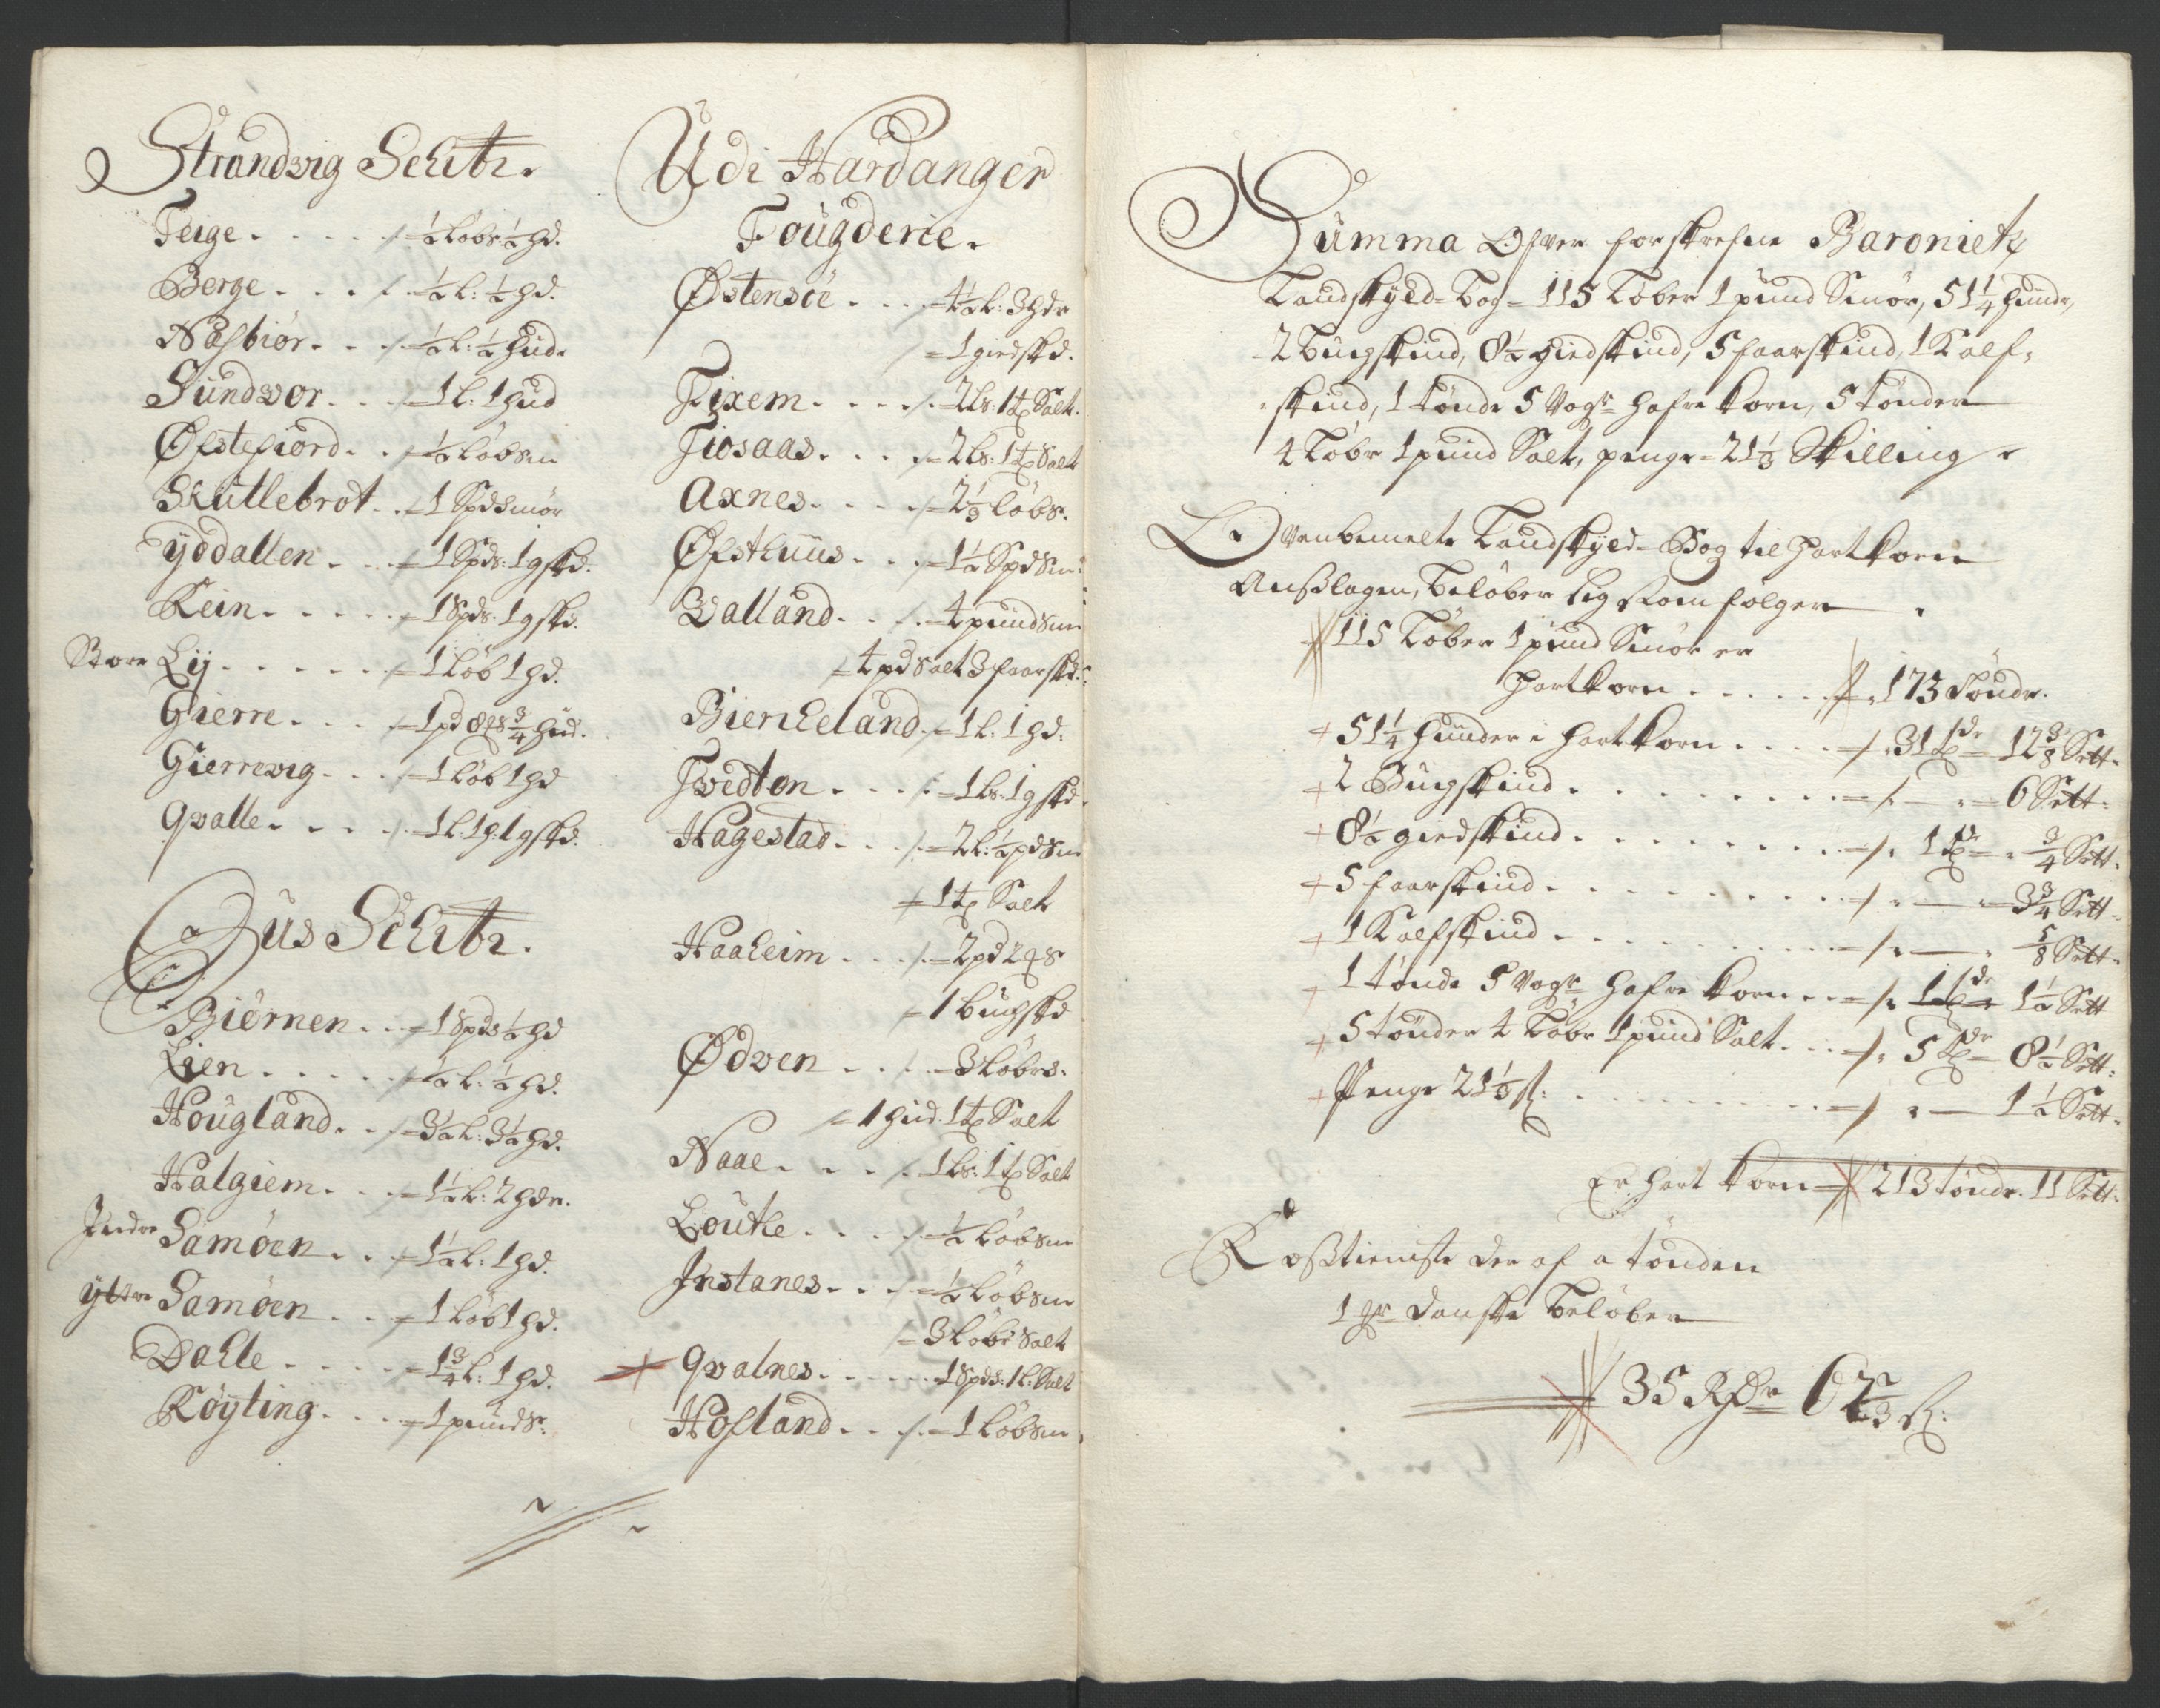 Strandvig Schibr.
Teige . . . . . /. ½ Løbs ½ hd.
Berge . . . . /. ½ L: ½ hd.
Nasbiør . . . /. ½ L: ½ hud.
Sundvor . . . /. 1 L: 1 hud
Øfstefiord . . /. ½ Løbsm
Skutlebrot . . 1 Spdsmør
Yddallen . . . 1 Spds: 1 gskd.
Rein . . . . . 1 Spds: 1 gskd.
Store Lij . . . . . . 1 Løb 1 hd.
Gierre . . . 1 pd 8 ¾ hud.
Gierrevig . . . 1 Løb 1 hd
Qvalle . . . . /. 1 L. 1 h. 1 gskd.
Uus Schibr.
Biørnen . . . 1 Spds ½ hd
Lien . . . . . ½ L: ½ hd.
Hougland . . /. 3½ L: 3½ hd.
Halgiem . . . 1½ L: 2 hdr.
Indre Samøen . . . 1½ L: 1 hd.
Yttre Samøen . . 1 Løb 1 hd.
Dahle . . . . . 1¾ L: 1 hd.
Røyting . . . 1 punds:
Udi Hardanger
Fougderie.
Østensøe . . . 4½ L: 3 hdr
= 1 giedskd.
Fixem . . . . /. 2 Ls: 1 tø Salt.
Tiosaas . . . . 2 Ls: 1 tø Salt
Axnes . . . . /. 2⅓ Løbs.
Øfsthuus . . . 1½ Spdsm:
Valland . . /. 4 pundsm
= 4 pd Salt 3 faarskd:
Bierkeland . /. 1 L: 1 hd:
Tvedten . . . . 1 Ls: 1 gskd.
Hagestad . . . /. 2 L: ½ pdsm
1 tø Salt
Haaheim . . . /. 2 pd
1 bugskd
Ødven . . . . 3 Løbrs.
1 hud. 1 tø Salt
Naae . . . . /. 1 Ls: 1 tø Salt
Louthe . . . . . ½ Løbsm
Instanes . . . /. ½ Løbsm
= 3 Løbr Salt
Qvalnes . . . . . 1 Spds: 1 L. Salt
Hofland . . . /. 1 Løbsm
Summa Ofver forskrefne Baronietz
Landskyld-Bog = 115 Løber 1 pund Smør, 51¼ huuder,
2 Bugskind, 8½ giedskind, 5 faarskind, 1 Kalf-
skind, 1 tønde 5 Vogr hafre korn, 5 tønder
4 Løbr 1 pund Salt, penge = 21⅓ Skilling
Ovenbemelte Landskyld-Bog til hartkorn
Anslagen, beløber sig som følger
115 Løber 1 pund Smør er
hartkorn . . . . . 173 Tøndr.
51¼ huuder i hartkorn . . . . 31 tdr 12⅜ Sett.
2 Bugskind . . . . . . . . . — 6 Sett:
8½ giedskind . . . . . . . . . 1 tø ¾ Sett.
5 faarskind . . . . . . . . . — 3¾ Sett.
1 Kalfskind . . . . . . . . . — ⅝ Sett.
1 tønde 5 Vogr hafre korn . . 1 tdr 1½ Sett
5 tønder 4 Løbr 1 pund Salt . . . 5 tdr 8½ Sett:
Penge 21⅓ s: . . . . . . . . . — 1½ Sett.
Er hart korn 213 tøndr. 11 Sett:
Rosstieniste der af a tønden
1 danske beløber
35 Rdr 62⅔ s: